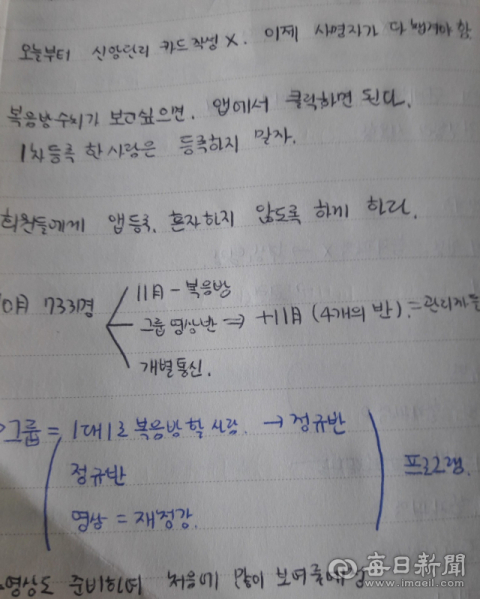 오늘부터 신앙관리 카드작성 X. 이제 사명자가 다 챙겨야 함
복음방수치가 보고싶으면. 앱에서 클릭하면 된다.
1차등록 한사람은 등록하지 말자.
회원들에게 앱등록, 혼자하지 않도록 하게 하라.
0月 733명
11月 - 복음방
그룹 영상반 ⇒ +11月 (4개의 반). = 관리자들
개별통신.
그룹 = 1대1로 복음방 할 사람. → 정규반
정규반
프로그램.
영상 = 재정강.
영상도 준비하여 처음에 많이 보여줄
每日新聞
www.imaeil.com